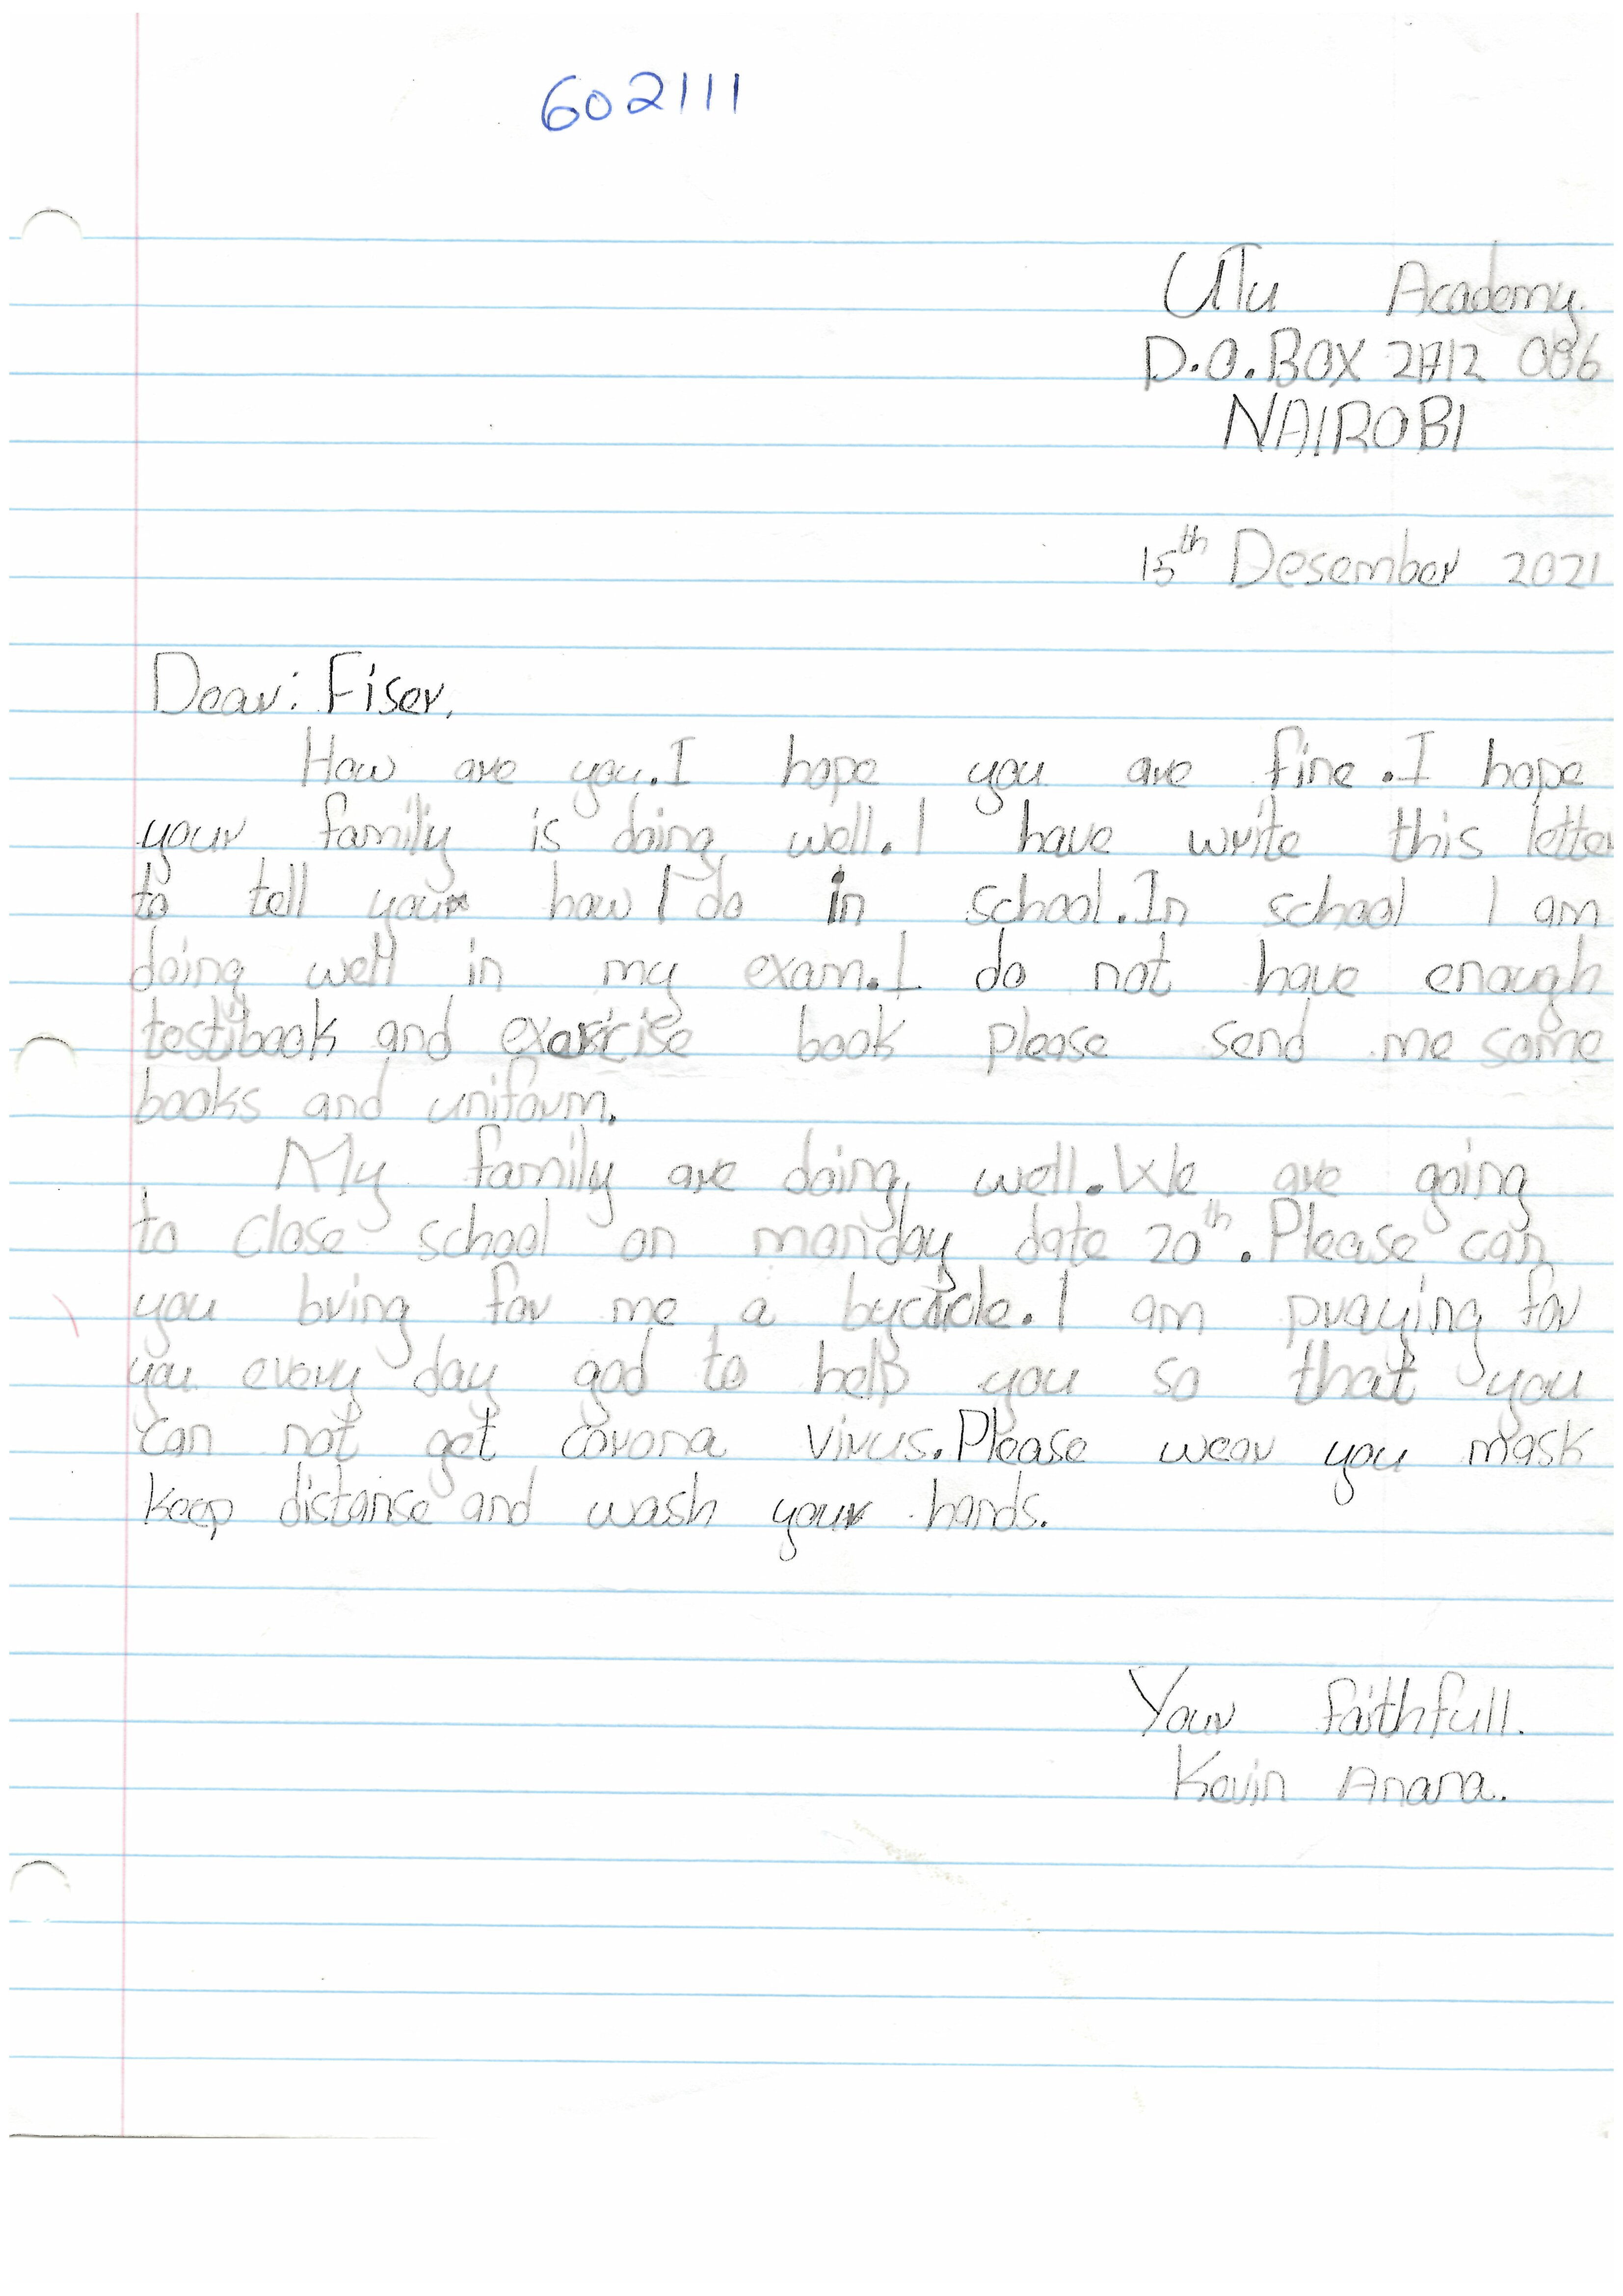 602111
UTu Academy.
D.O.BOX 2712 086
NAIROBI
15th Desember 2021
Dear: Fiser,
How are you.I hope you are fine.I hope
your family is doing well.I have write this letter
to tell you how I do in school.In school I am
doing well in my exam.I do not have enough
testibook and exercise book please send me some
books and uniform.
My family are doing well.We are going
to close school on monday date 20th.Please can
you bring for me a bycicle.I am praying for
you every day god to help you so that you
can not get corona virus.Please wear you mask
keep distanse and wash your hands.
Your faithfull.
Kevin Anana.